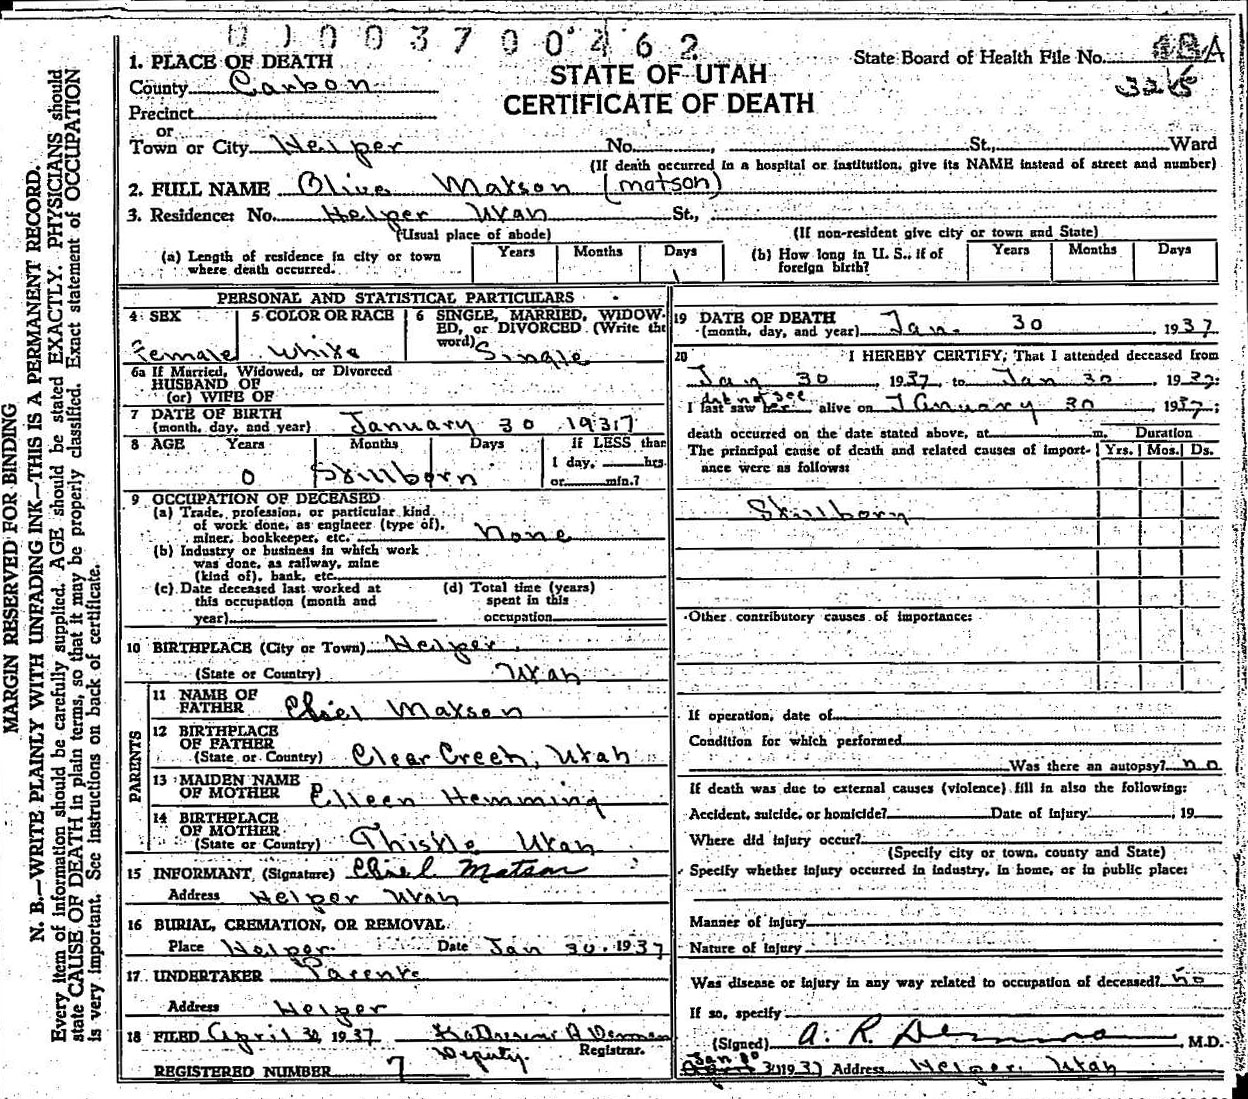 003700462
1. PLACE OF DEATH
County Carbon
Precinct
or
Town or City Helper No. , St., Ward
(If death occurred in a hospital or institution, give its NAME instead of street and number)
STATE OF UTAH
CERTIFICATE OF DEATH
State Board of Health File No.
2. FULL NAME Olive Matson (Matson)
3. Residence: No. Helper Utah St.,
(Usual place of abode) (If non-resident give city or town and State)
(a) Length of residence in city or town where death occurred. Years Months Days
(b) How long in U. S., if of foreign birth? Years Months Days
PERSONAL AND STATISTICAL PARTICULARS
4 SEX 5 COLOR OR RACE 6 SINGLE, MARRIED, WIDOWED, or DIVORCED (Write the word)
Female White Single
6a If Married, Widowed, or Divorced
HUSBAND OF
(or) WIFE OF
7 DATE OF BIRTH
(month, day, and year) January 30 1937
8 AGE Years Months Days If LESS than
1 day, hrs.
or min.?
0 Stillborn
9 OCCUPATION OF DECEASED
(a) Trade, profession, or particular kind
of work done, as engineer (type of),
miner, bookkeeper, etc. None
(b) Industry or business in which work
was done, as railway, mine
(kind of), bank, etc.
(c) Date deceased last worked at
this occupation (month and
year)
(d) Total time (years)
spent in this
occupation
10 BIRTHPLACE (City or Town) Helper,
(State or Country) Utah
PARENTS
11 NAME OF
FATHER Chiel Matson
12 BIRTHPLACE
OF FATHER
(State or Country) Clear Creek, Utah
13 MAIDEN NAME
OF MOTHER Elleen Hemming
14 BIRTHPLACE
OF MOTHER
(State or Country) Thistle Utah
15 INFORMANT (Signature) Chiel Matson
Address Helper Utah
16 BURIAL, CREMATION, OR REMOVAL
Place Helper Date Jan 30, 1937
17. UNDERTAKER Parents
Address Helper
18 FILED April 1937
Deputy Registrar.
REGISTERED NUMBER 7
19 DATE OF DEATH
(month, day, and year) Jan. 30, 1937
20 I HEREBY CERTIFY, That I attended deceased from
Jan 30, 1937, to Jan 30 1937;
did not see
I last saw her alive on January 30 1937;
death occurred on the date stated above, at m. Duration
The principal cause of death and related causes of importance were as follows: Yrs. Mos. Ds.
Stillborn
Other contributory causes of importance:
If operation, date of
Condition for which performed
Was there an autopsy? no
If death was due to external causes (violence) fill in also the following:
Accident, suicide, or homicide? Date of injury , 19
Where did injury occur?
(Specify city or town, county and State)
Specify whether injury occurred in industry, in home, or in public place:
Manner of injury
Nature of injury
Was disease or injury in any way related to occupation of deceased? no
If so, specify
(Signed) A. R. Demman, M.D.
Jan 30 1937 Address Helper, Utah
MARGIN RESERVED FOR BINDING
N. B.—WRITE PLAINLY WITH UNFADING INK—THIS IS A PERMANENT RECORD.
Every item of information should be carefully supplied. AGE should be stated EXACTLY. PHYSICIANS should
state CAUSE OF DEATH in plain terms, so that it may be properly classified. Exact statement of OCCUPATION
is very important. See instructions on back of certificate.